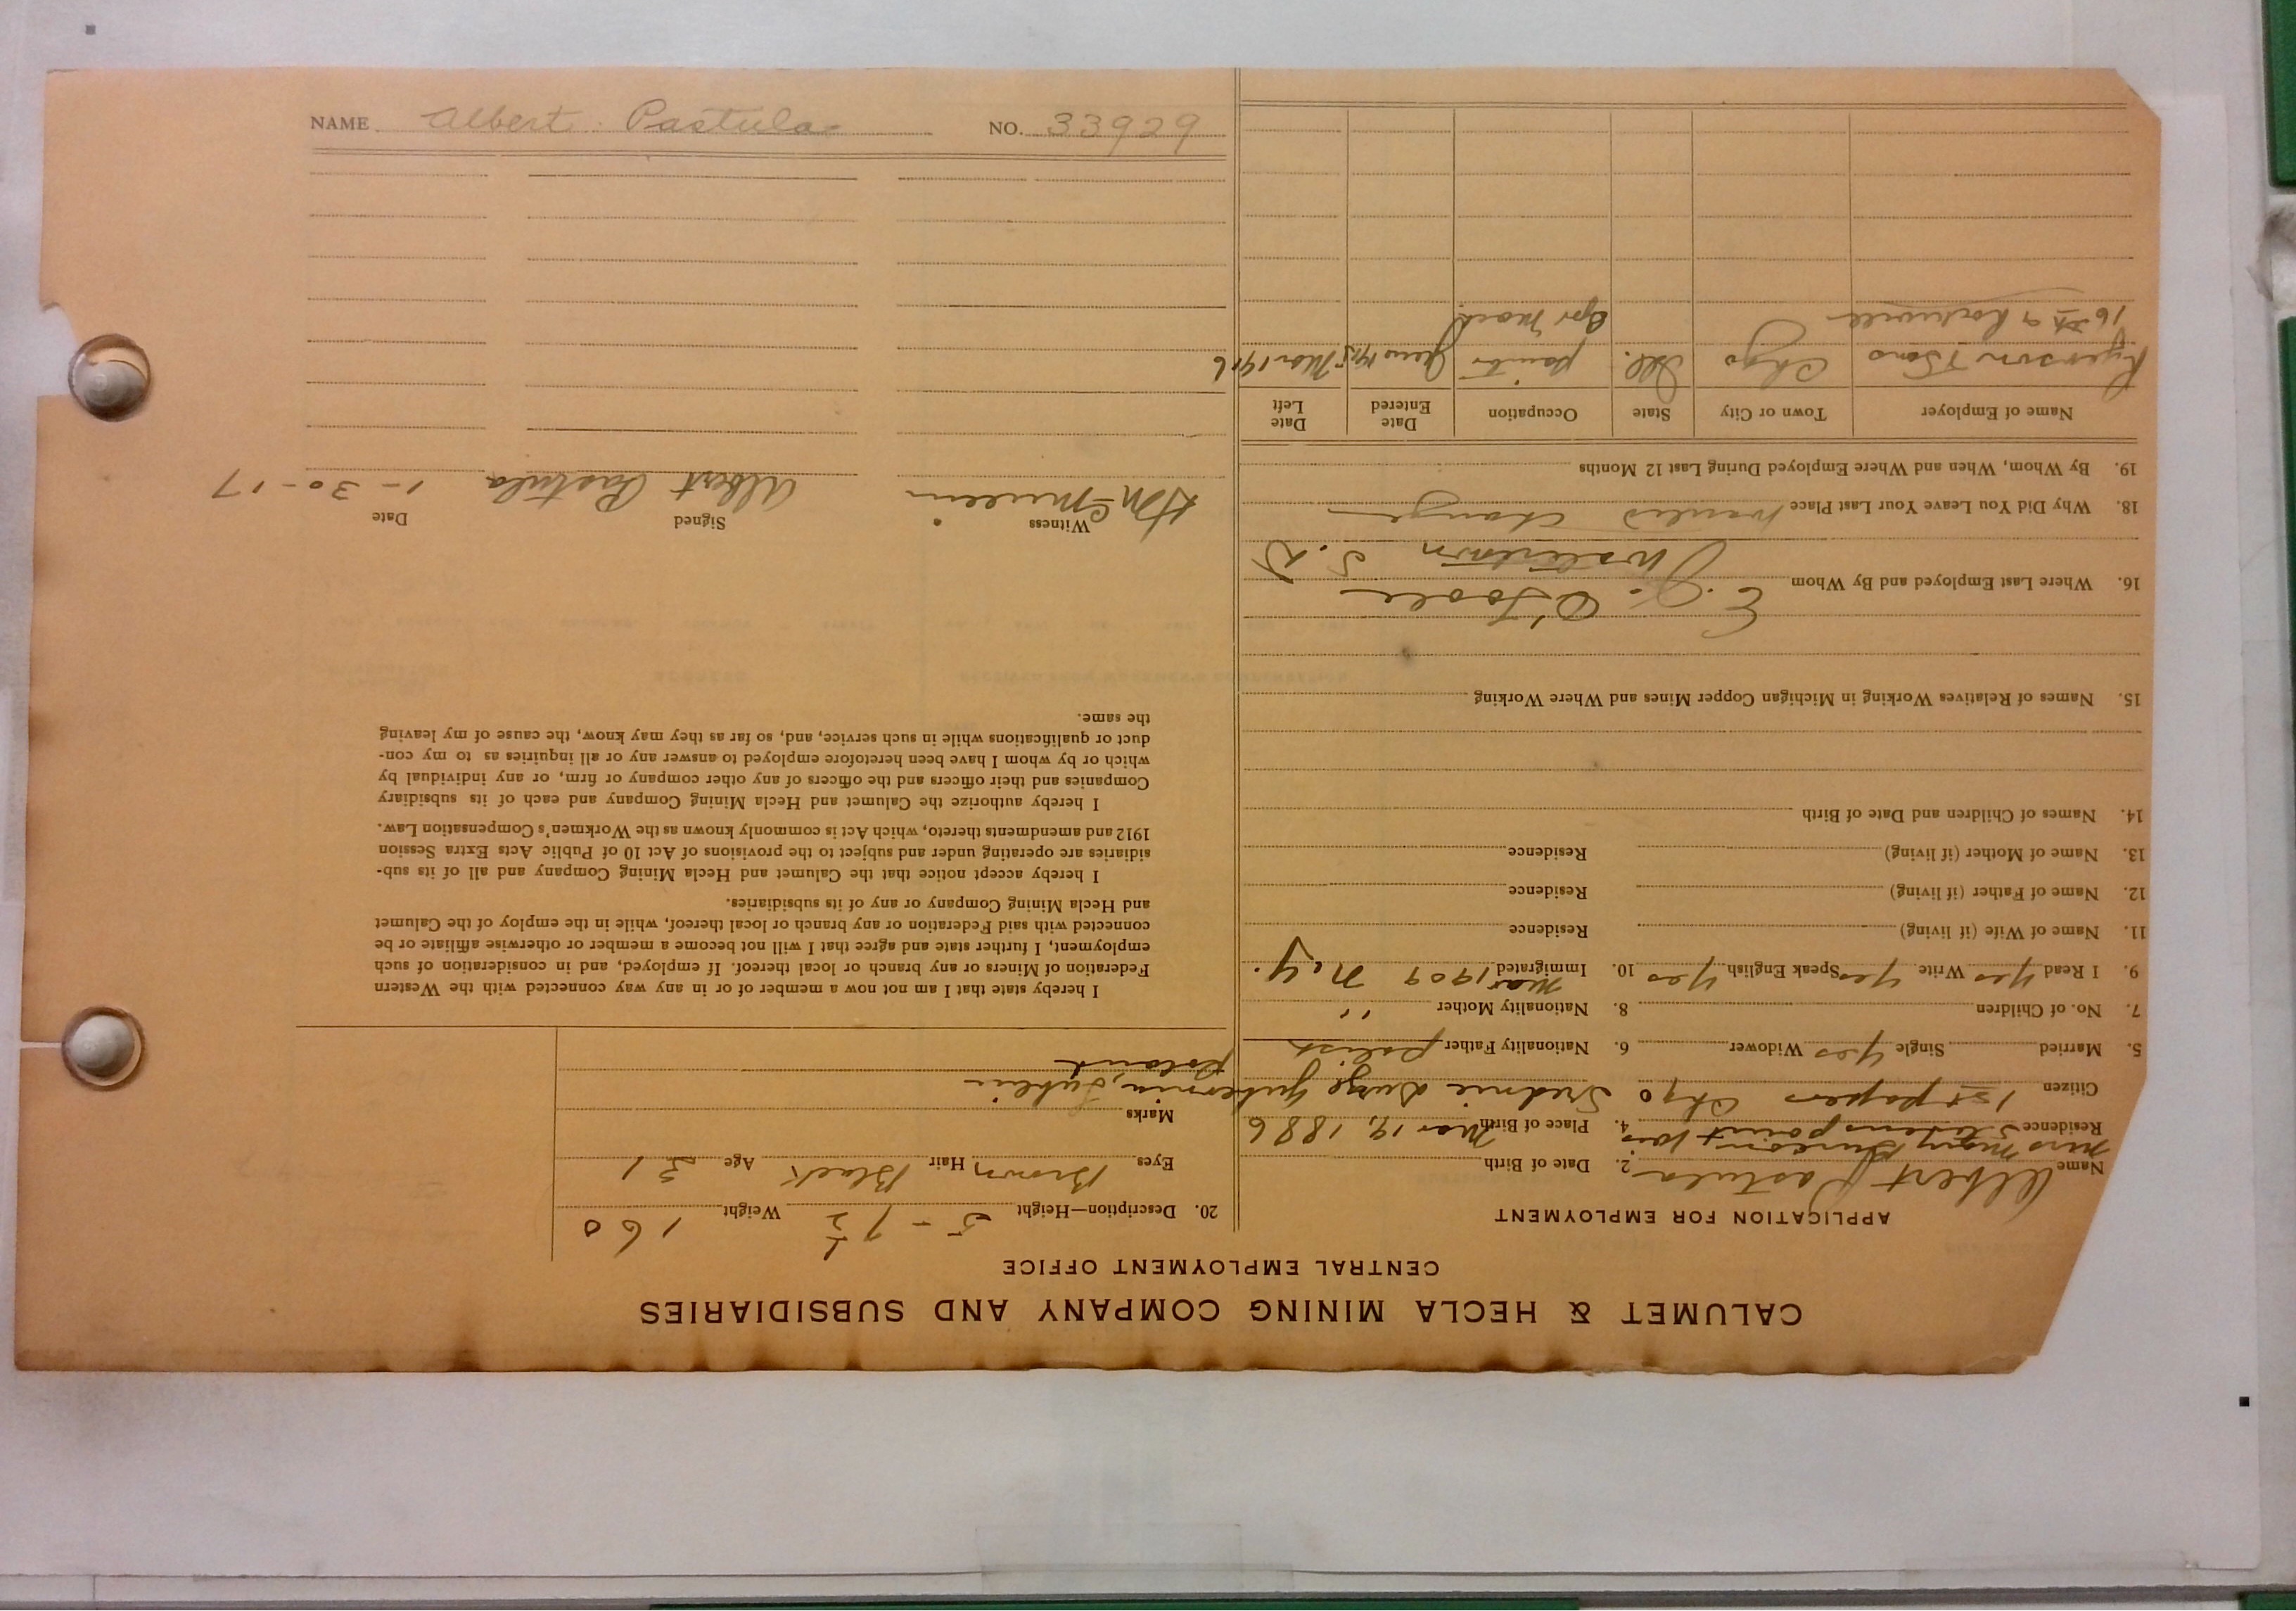 CALUMET & HECLA MINING COMPANY AND SUBSIDIARIES
CENTRAL EMPLOYMENT OFFICE
APPLICATION FOR EMPLOYMENT
Name Albert Pastula 2. Date of Birth
Mrs Mary
Residence Stevens point Wis. 4. Place of Birth Mar 19, 1886
Citizen 1st papers Chgo Gubernia, Lublin
Poland
5. Married Single yes Widower 6. Nationality Father polish
7. No. of Children 8. Nationality Mother "
9. I Read yes Write yes Speak English yes 10. Immigrated Mar 1909 N.Y.
11. Name of Wife (if living) Residence
12. Name of Father (if living) Residence
13. Name of Mother (if living) Residence
14. Names of Children and Date of Birth
15. Names of Relatives Working in Michigan Copper Mines and Where Working
16. Where Last Employed and By Whom E. J. O'Toole
S. D
18. Why Did You Leave Your Last Place wanted change
19. By Whom, When and Where Employed During Last 12 Months
Name of Employer Town or City State Occupation Date Entered Date Left
Ryerson & Sons Chgo Ill. June 1915 Mar 1916
16 st & Rockwell Opr Mach
20. Description—Height 5-7½ Weight 160
Eyes Brown Hair Black Age 31
Marks
I hereby state that I am not now a member of or in any way connected with the Western
Federation of Miners or any branch or local thereof. If employed, and in consideration of such
employment, I further state and agree that I will not become a member or otherwise affiliate or be
connected with said Federation or any branch or local thereof, while in the employ of the Calumet
and Hecla Mining Company or any of its subsidiaries.
I hereby accept notice that the Calumet and Hecla Mining Company and all of its sub-
sidiaries are operating under and subject to the provisions of Act 10 of Public Acts Extra Session
1912 and amendments thereto, which Act is commonly known as the Workmen's Compensation Law.
I hereby authorize the Calumet and Hecla Mining Company and each of its subsidiary
Companies and their officers and the officers of any other company or firm, or any individual by
which or by whom I have been heretofore employed to answer any or all inquiries as to my con-
duct or qualifications while in such service, and, so far as they may know, the cause of my leaving
the same.
Witness Signed Date
Albert Pastula 1-30-17
NAME Albert Pastula NO. 33929